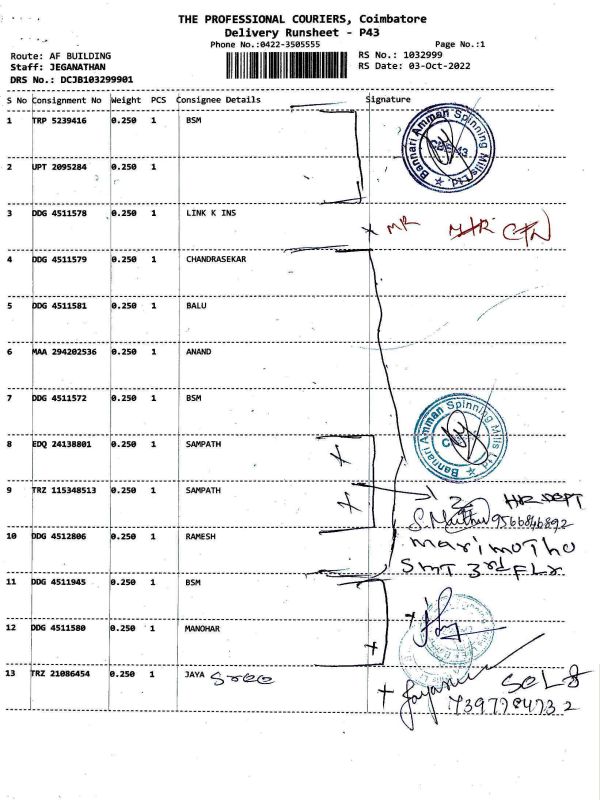 THE PROFESSIONAL COURIERS, Coimbatore
Delivery Runsheet - P43
Phone No.:0422-3505555 Page No.:1
Route: AF BUILDING RS No.: 1032999
Staff: JEGANATHAN RS Date: 03-Oct-2022
DRS No.: DCJB103299901
S No Consignment No Weight PCS Consignee Details Signature
1 TRP 5239416 0.250 1 BSM
Bannari Amman Spinning Mills Ltd.
2 UPT 2095284 0.250 1
3 DDG 4511578 0.250 1 LINK K INS
MR
4 DDG 4511579 0.250 1 CHANDRASEKAR
5 DDG 4511581 0.250 1 BALU
6 MAA 294202536 0.250 1 ANAND
7 DDG 4511572 0.250 1 BSM
Bannari Amman Spinning Mills
8 EDQ 24138801 0.250 1 SAMPATH
9 TRZ 115348513 0.250 1 SAMPATH
2 HR DEPT
9566846892
10 DDG 4512806 0.250 1 RAMESH
marimutho
SMT 3rd FLr
11 DDG 4511945 0.250 1 BSM
12 DDG 4511580 0.250 1 MANOHAR
13 TRZ 21086454 0.250 1 JAYA Sree